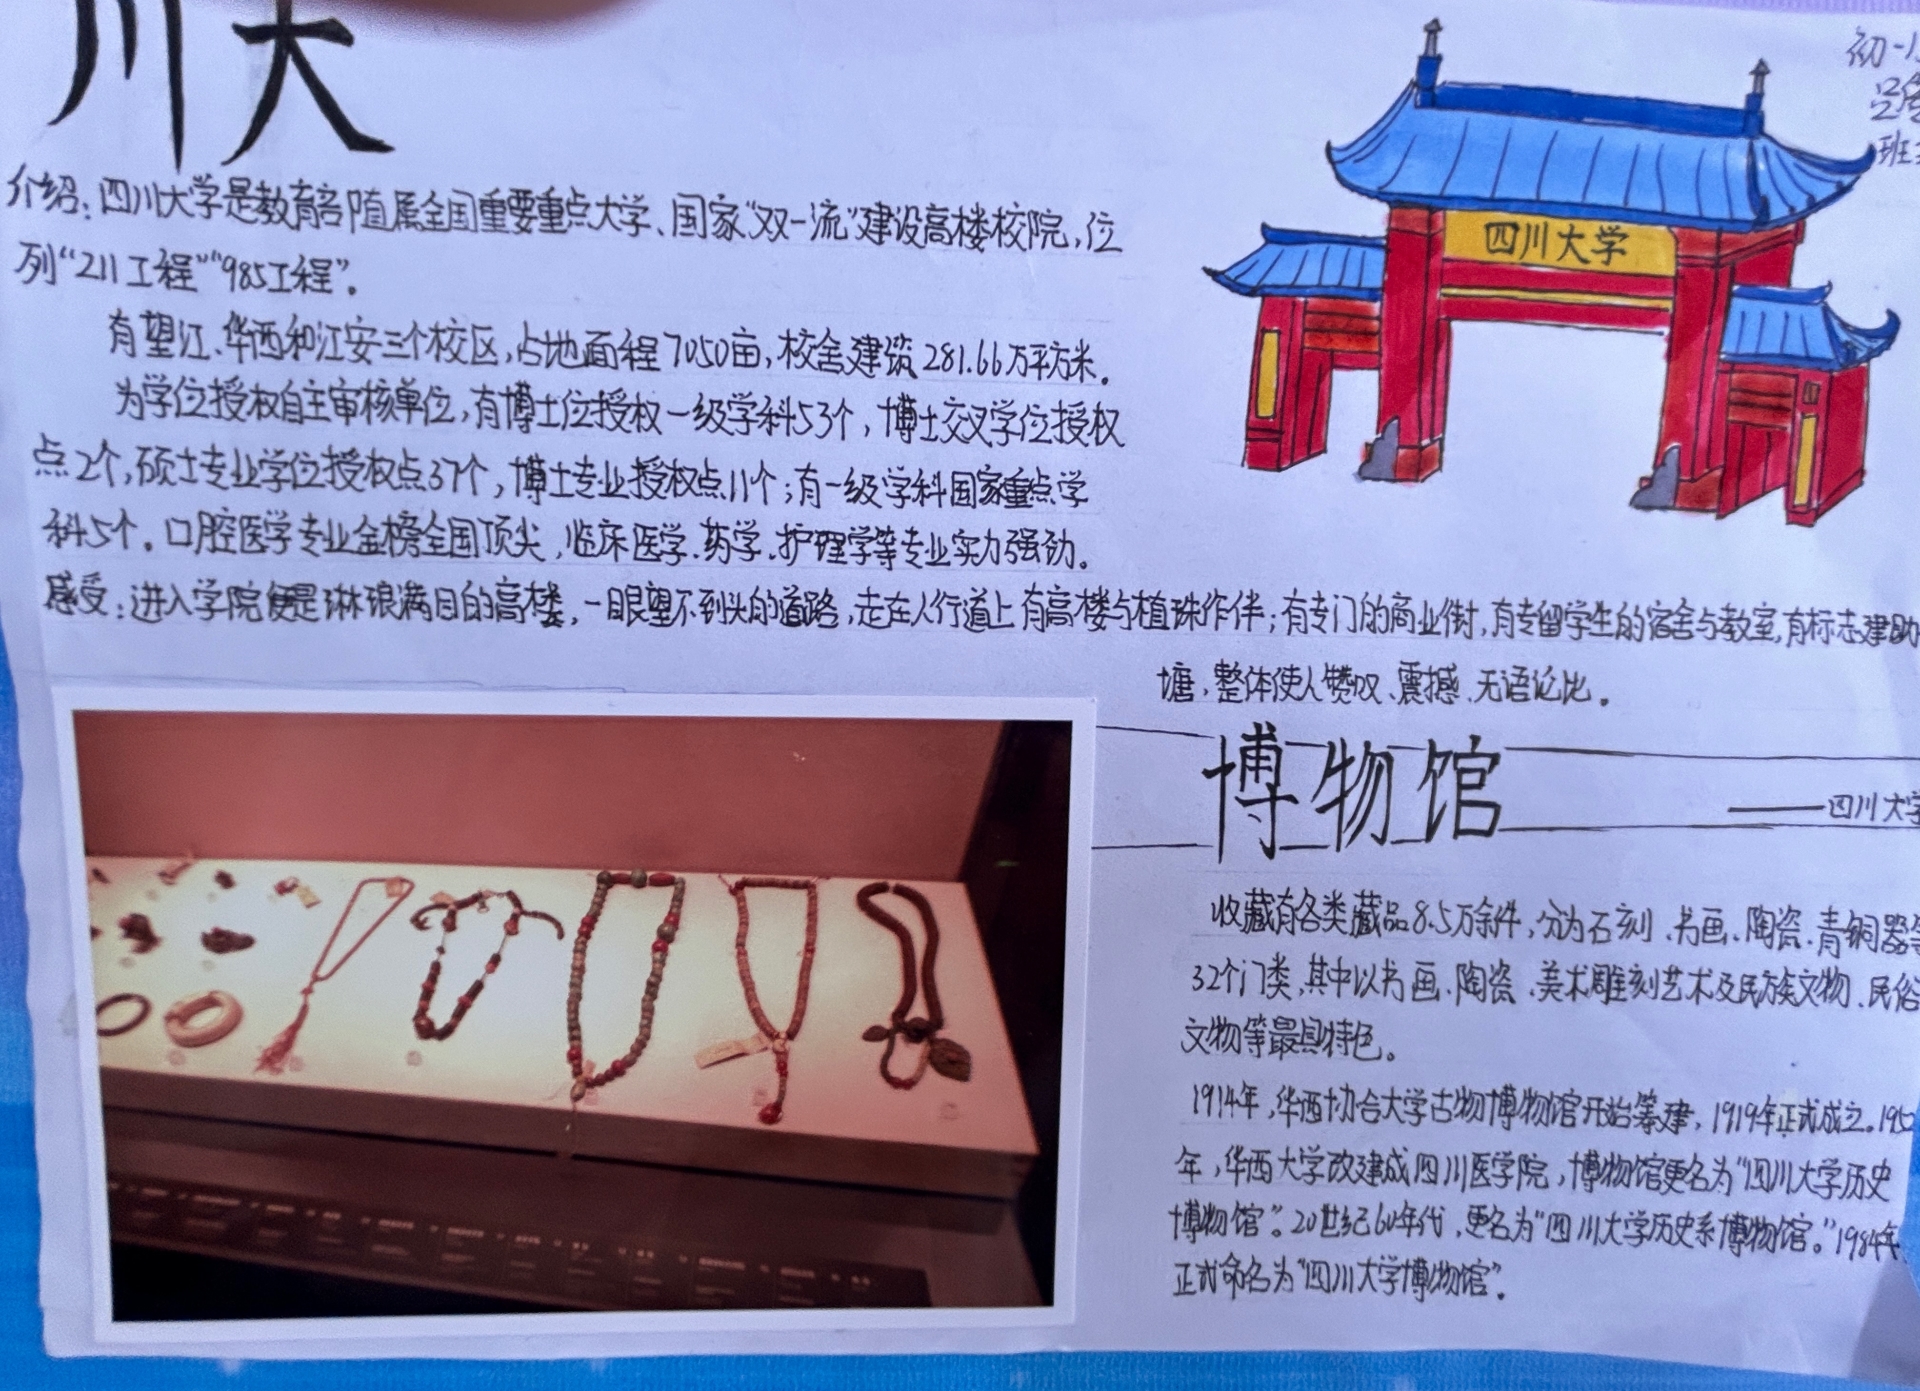 川大
初一
班
四川大学
介绍：四川大学是教育部直属全国重要重点大学、国家“双一流”建设高楼校院，位
列“211工程”“985工程”。
有望江、华西和江安三个校区，占地面程7050亩，校舍建筑281.66万平方米。
为学位授权自主审核单位，有博士位授权一级学科53个，博士交叉学位授权
点2个，硕士专业学位授权点37个，博士专业授权点11个；有一级学科国家重点学
科5个。口腔医学专业金榜全国顶尖，临床医学、药学、护理学等专业实力强劲。
感受：进入学院便是琳琅满目的高楼，一眼望不到头的道路，走在人行道上有高楼与植珠作伴；有专门的商业街，有专留学生的宿舍与教室，有标志建
塘，整体使人赞叹、震撼、无语论比。
博物馆
——四川大学
收藏有各类藏品8.5万余件，分为石刻、书画、陶瓷、青铜器等
32个门类，其中以书画、陶瓷、美术雕刻艺术及民族文物、民俗
文物等最具特色。
1914年，华西协合大学古物博物馆开始筹建，1919年正式成立。195
年，华西大学改建成四川医学院，博物馆更名为“四川大学历史
博物馆”。20世纪60年代，更名为“四川大学历史系博物馆。”1984年
正式命名为“四川大学博物馆”。